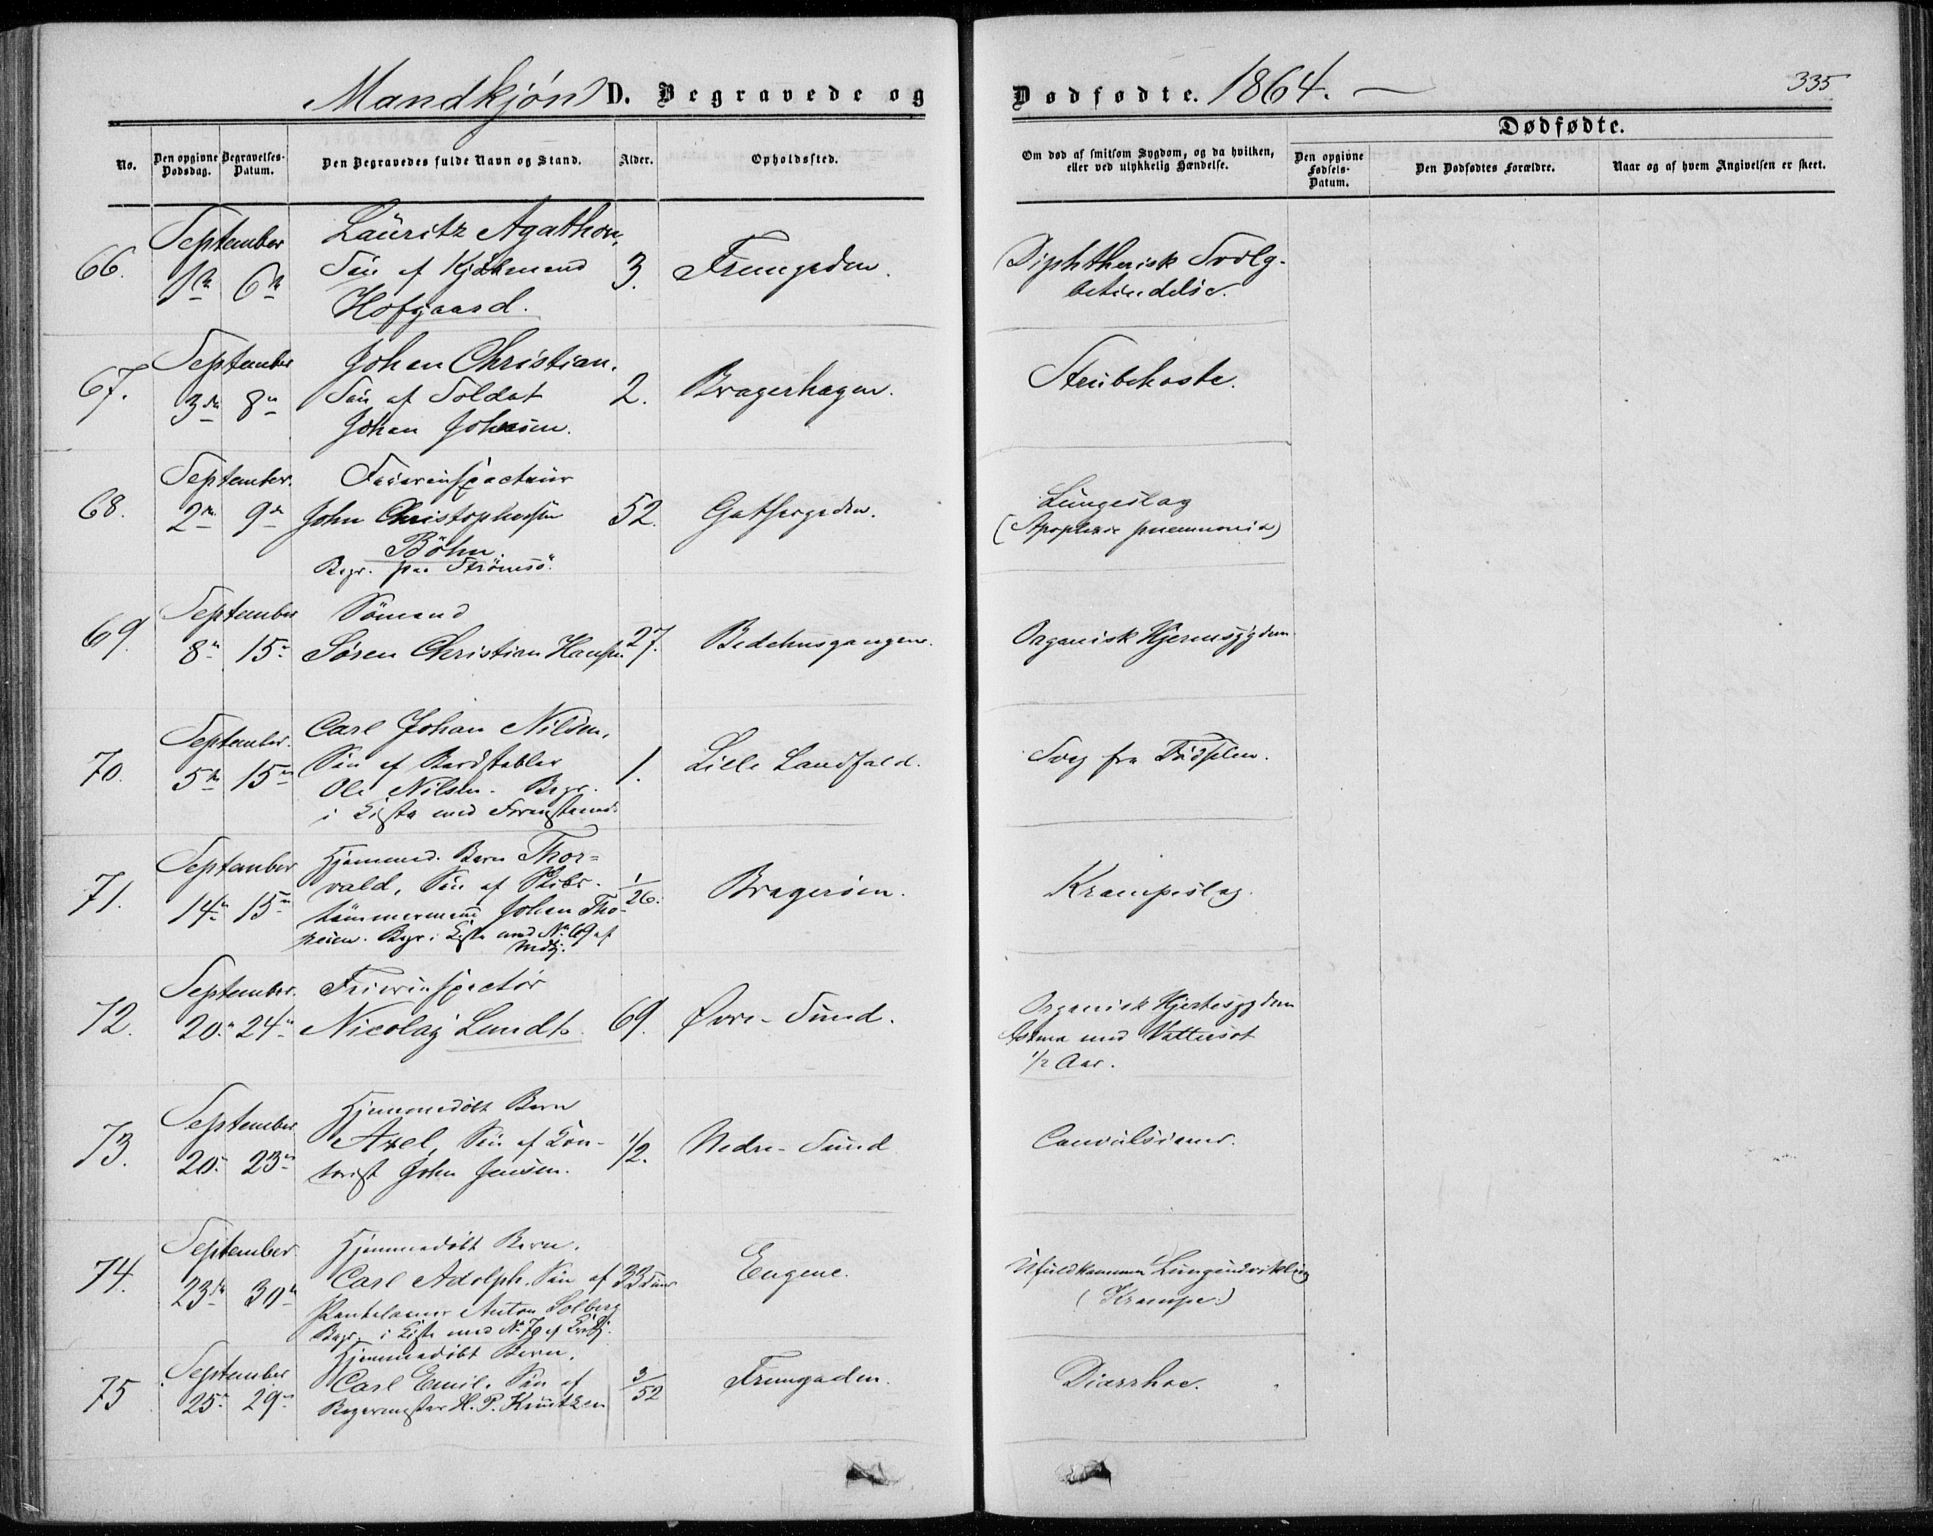 Mandkjøn D. Begravede og Dødfødte. 1864. —
335
Dødfødte.
No.
Den opgivne Dødsdag.
Begravelses-Datum.
Den Begravedes fulde Navn og Stand.
Alder.
Opholdssted.
Om død af smitsom Sygdom, og da hvilken, eller ved ulykkelig Hændelse.
Den opgivne Fødsels-Datum.
Den Dødfødtes Forældre.
Naar og af hvem Angivelsen er skeet.
66.
September
1ste 6te
Lauritz Agathon,
Søn af Kjøbmand
Hofgaard.
3.
Fruegaden.
Diphtherisk Svælg-
betændelse.
67.
September
3die 8de
Johan Christian.
Søn af Soldat
Johan Johnsen.
2.
Bragerhagen.
Strubehoste.
68.
September.
2den 9de
Feierinspecteur
John Christophersen
Böhn.
Begr. paa Strømsö.
52.
Gutfergaden.
Lungeslag
(Apoplexie pneumonia)
69.
September
8de 15de
Sömand
Søren Christian Hansen
27.
Bedehusgangen.
Organisk Hjernesygdom
70.
September.
5te 15de
Carl Johan Nilsen,
Søn af Bordstabler
Ole Nilsen. Begr.
i Kiste med
1.
Lille Landfald.
Svag fra Födselen.
71.
September
14de 15de
Hjemmed. Barn Thor-
vald, Søn af Skibs-
tømmermand Johan Tho-
resen. Begr. i Kiste med No 69 af
Mdkj.
1/26.
Bragerøen.
Krampeslag.
72.
September.
20de 24de
Feierinspectør
Nicolaj Lundt.
69.
Øvre-Sund.
Organisk Hjertesygdom
Astma med Vattersot
1/2 Aar.
73.
September
20de 23de
Hjemmedöbt Barn
Axel, Søn af Kon-
torist John Jensen.
1/2.
Nedre-Sund
Convulsioner.
74.
September
23de 30te
Hjemmedöbt Barn.
Carl Adolph. Søn af
Anton Solberg
Begr. i Kiste med No 70 af Kvkj.
33 Dage
Eugene.
Ufuldkommen Lungeudvikling
(Krampe.)
75
September
25de 29de
Hjemmedöbt Barn.
Carl Emil. Søn af
Bagermester H. P. Knutzen
3/52
Fruegaden.
Diarrhoe.